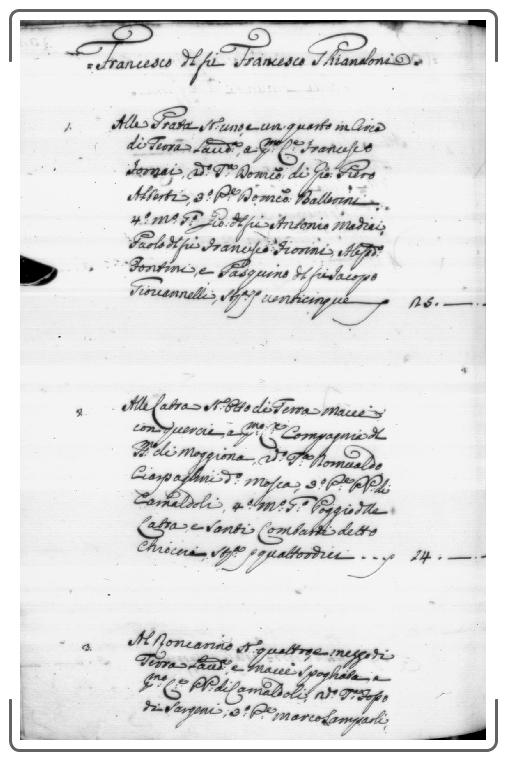 = Francesco dl fù Francesco Ghianaloni =
1. Alle Prata St. uno, e un quarto in Circa
di Terra Lavo.a a p.mo C.e Francesco
Fornai, 2.o T.a Domco. di Gio. Piero
Alberti, 3.o P.e Domco. Ballerini
4.o mo. T.a Gio. dl fù Antonio medici,
Paolo dl fù Francesco Fiorini, Aless.o
Fontini, e Pasquino dl fù Jacopo
Giovannelli, venticinque 25. —
2. Alle Cabra St. Otto di Terra macci
con querce a p.mo C.e Compagnia dl
di Moggiona, 2.o T.a Romualdo
Ciarpaglini d.o mosca, 3.o P.e PP. di
Camaldoli, 4.o mo. T.a Poggio dlle
Cabra e Santi Combatti detto
quattordici 24. —
3. Al Roncarino St. quattro, e mezzo di
Terra Lavo.a, e macci Spogliata, a
p.mo C.e PP. di Camaldoli, 2.o T.a
di Sargeni, 3.o P.e marco Lampaoli,